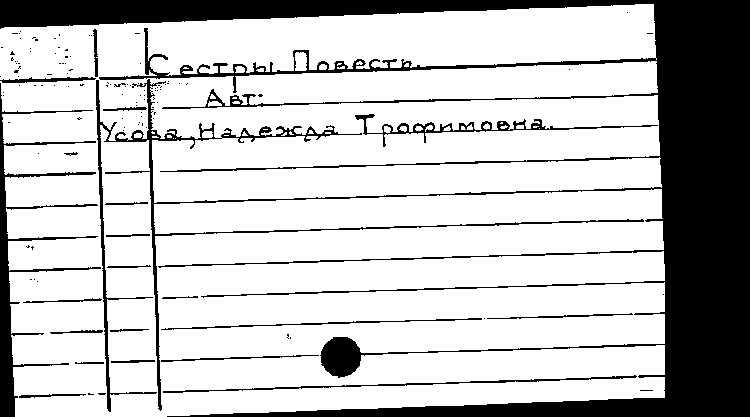 Сестры. Повесть.
Авт:
Усова, Надежда Трофимовна.